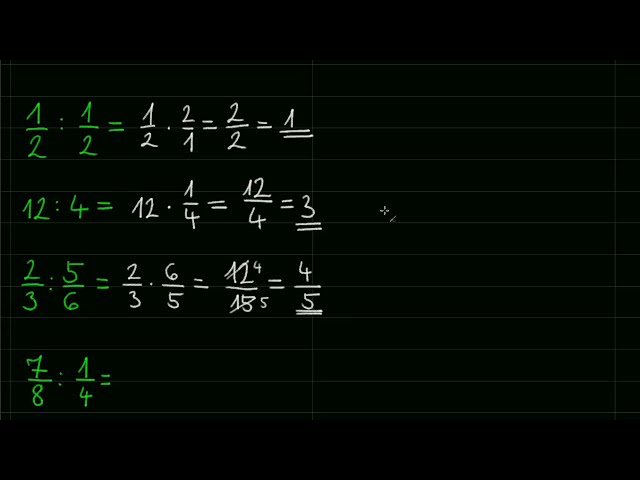 1/2 : 1/2 = 1/2 · 2/1 = 2/2 = 1
12 : 4 = 12 · 1/4 = 12/4 = 3
2/3 : 5/6 = 2/3 · 6/5 = 12 4/15 5 = 4/5
7/8 : 1/4 =